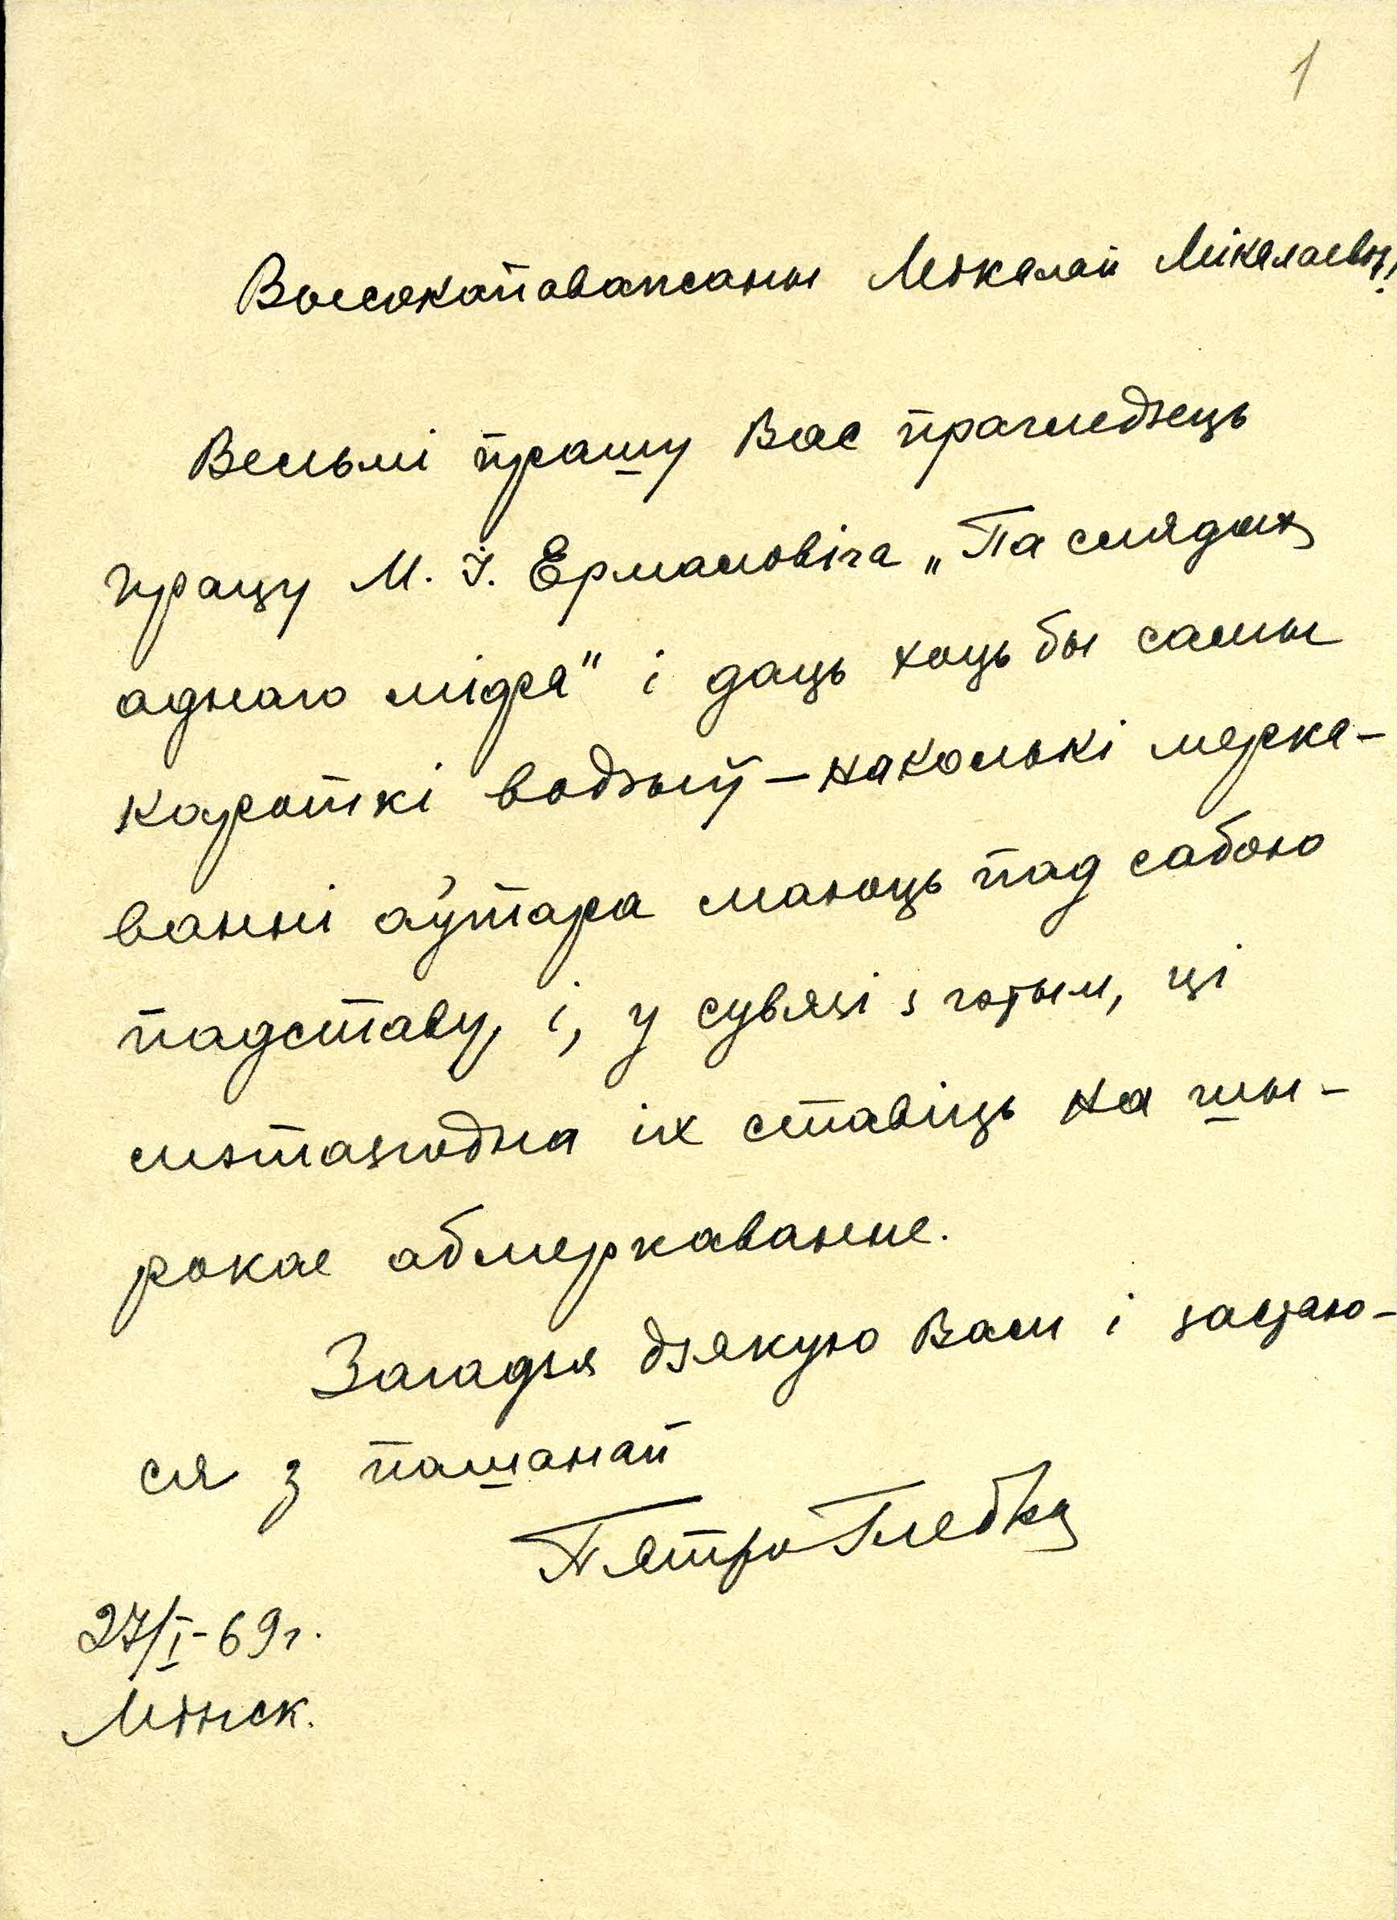 1
Высокапаважаны Мікалай Мікалаевіч!
Вельмі прашу Вас прагледзець
працу М. І. Ермаловіча „Па слядах
аднаго міфа" і даць хоць бы самы
кароткі водзыў — наколькі мерка-
ванні аўтара маюць пад сабою
падставу, і, у сувязі з гэтым, ці
мэтазгодна іх ставіць на шы-
рокае абмеркаванне.
Загадзя дзякую Вам і застаю-
ся з пашанай
Пятро Глебка
27/I-69 г.
Мінск.